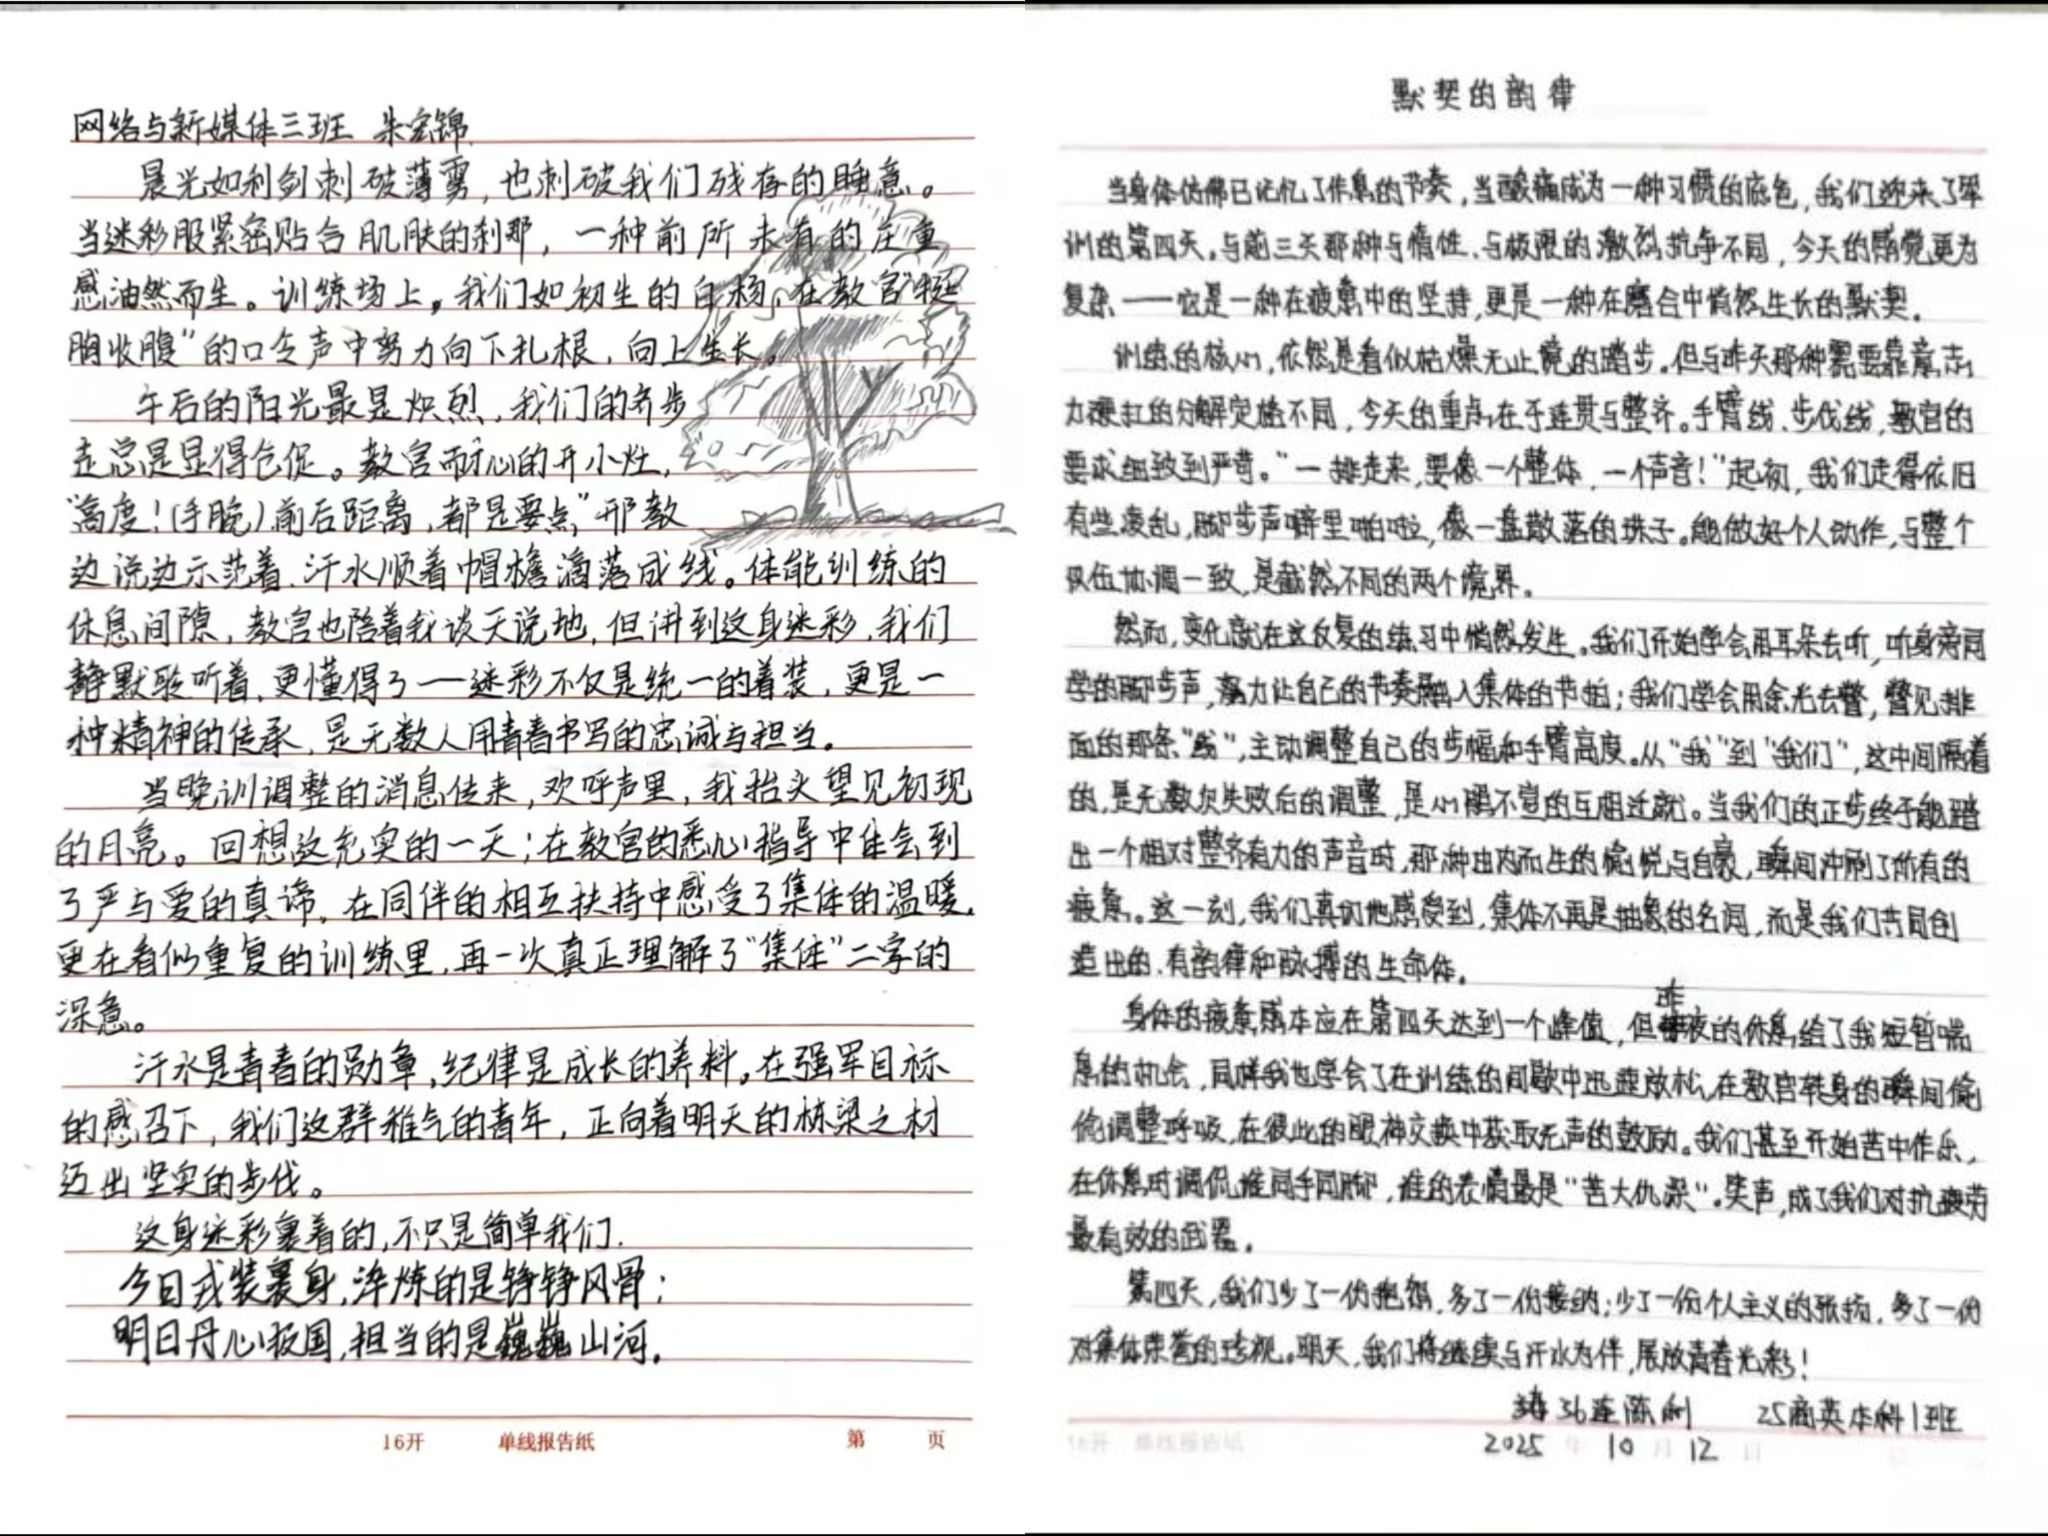 网络与新媒体三班 朱宏锦
晨光如利剑刺破薄雾，也刺破我们残存的睡意。
当迷彩服紧密贴合肌肤的刹那，一种前所未有的庄重
感油然而生。训练场上。我们如初生的白杨，在教官“挺
胸收腹”的口令声中努力向下扎根，向上生长。
午后的阳光最是炽烈，我们的齐步
走总是显得仓促。教官耐心的开小灶，
“高度！（手腕）前后距离，都是要点”邢教
边说边示范着、汗水顺着帽檐滴落成线。体能训练的
休息间隙，教官也陪着我谈天说地，但讲到这身迷彩，我们
静默聆听着，更懂得了——迷彩不仅是统一的着装，更是一
种精神的传承，是无数人用青春书写的忠诚与担当。
当晚训调整的消息传来，欢呼声里，我抬头望见初现
的月亮。回想这充实的一天；在教官的悉心指导中体会到
了严与爱的真谛，在同伴的相互扶持中感受了集体的温暖，
更在看似重复的训练里，再一次真正理解了“集体”二字的
深意。
汗水是青春的勋章，纪律是成长的养料。在强军目标
的感召下，我们这群稚气的青年，正向着明天的栋梁之材
迈出坚实的步伐。
这身迷彩裹着的，不只是简单我们.
今日戎装裹身，淬炼的是铮铮风骨；
明日丹心报国，担当的是巍巍山河。
16开 单线报告纸 第 页
默契的韵律
当身体仿佛已记忆了作息的节奏，当酸痛成为一种习惯的底色，我们迎来了军
训的第四天。与前三天那种与惰性、与极限的激烈抗争不同，今天的感觉更为
复杂——它是一种在疲惫中的坚持，更是一种在磨合中悄然生长的默契。
训练的核心，依然是看似枯燥无止境的踏步。但与昨天那种需要靠意志
力硬扛的分解定格不同，今天的重点在于连贯与整齐。手臂线、步伐线，教官的
要求细致到严苛。“一排走来，要像一个整体，一个声音！”起初，我们走得依旧
有些凌乱，脚步声噼里啪啦，像一盘散落的珠子。能做好个人动作，与整个
队伍协调一致，是截然不同的两个境界。
然而，变化就在这反复的练习中悄然发生。我们开始学会用耳朵去听，听身旁同
学的脚步声，努力让自己的节奏融入集体的节拍；我们学会用余光去瞥，瞥见排
面的那条“线”，主动调整自己的步幅和手臂高度。从“我”到“我们”，这中间隔着
的，是无数次失败后的调整，是心照不宣的互相迁就。当我们的正步终于能踏
出一个相对整齐有力的声音时，那种由内而生的愉悦与自豪，瞬间冲刷了所有的
疲惫。这一刻，我们真切地感受到，集体不再是抽象的名词，而是我们共同创
造出的、有韵律和脉搏的生命体。
身体的疲惫感本应在第四天达到一个峰值，但昨夜的休息给了我短暂喘
息的机会，同样我也学会了在训练的间歇中迅速放松，在教官转身的瞬间偷
偷调整呼吸，在彼此的眼神交换中获取无声的鼓励。我们甚至开始苦中作乐，
在休息时调侃谁同手同脚，谁的表情最是“苦大仇深”。笑声，成了我们对抗疲劳
最有效的武器。
第四天，我们少了一份抱怨，多了一份接纳；少了一份个人主义的张扬，多了一份
对集体荣誉的珍视。明天，我们将继续与汗水为伴，展放青春光彩！
36连陈俐 25商英本科1班
16开 单线报告纸
2025 年 10 月 12 日